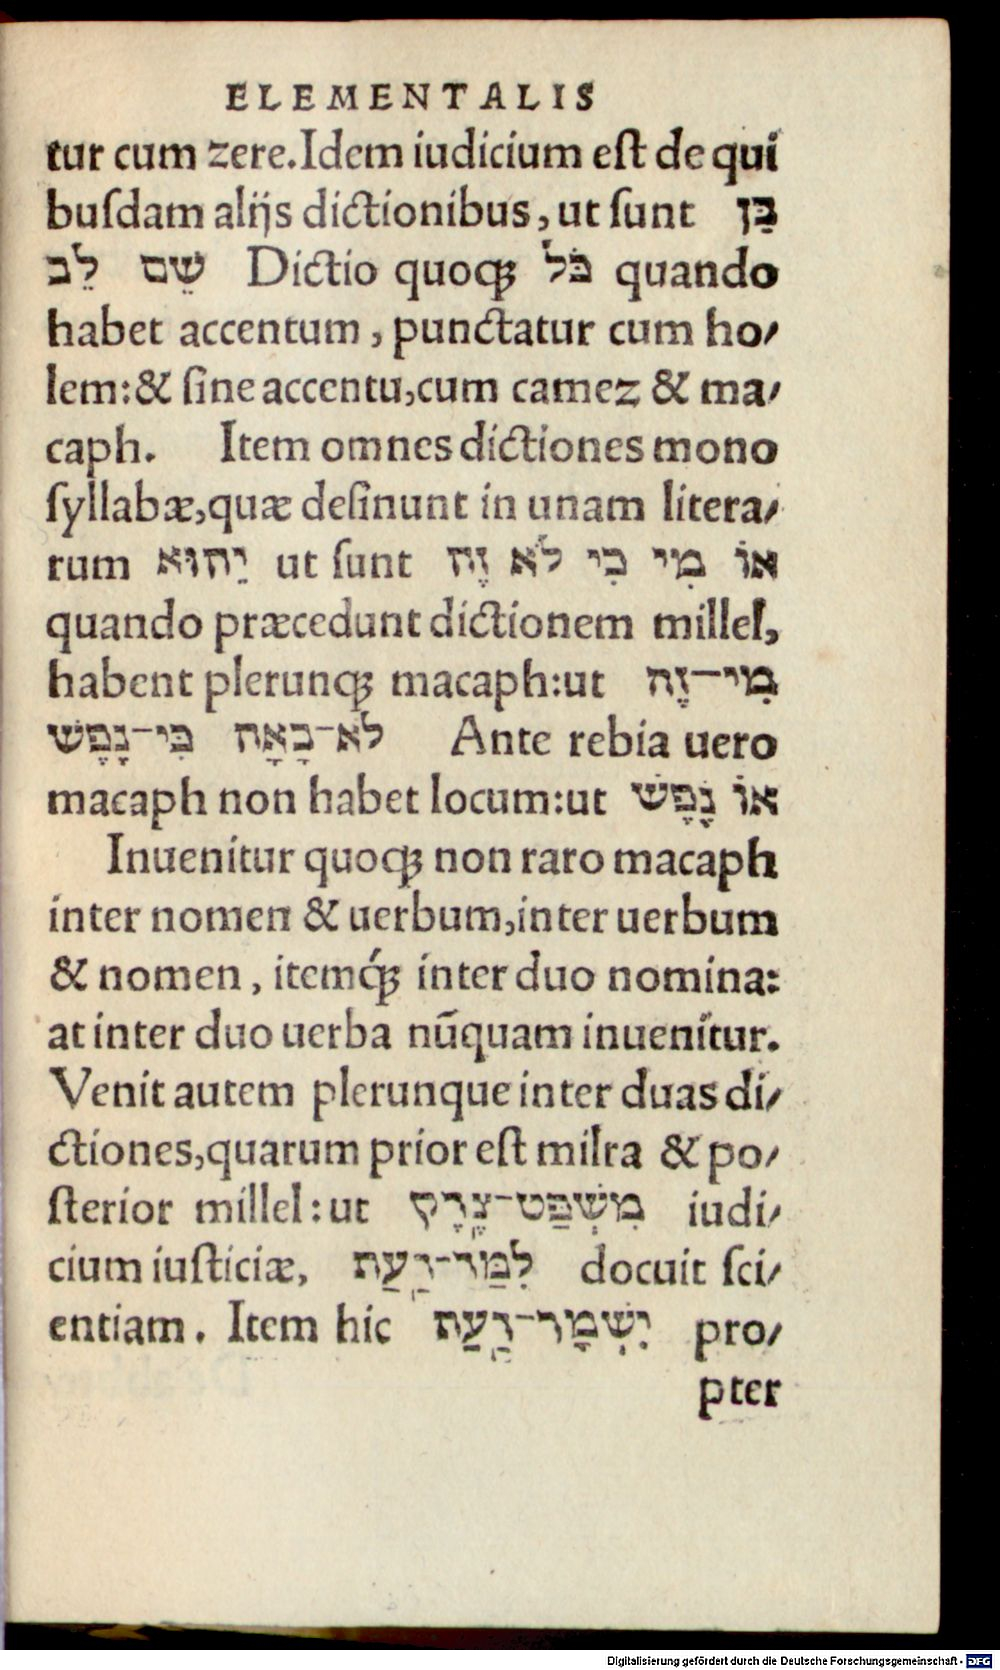 ELEMENTALIS
tur cum zere. Idem iudicium est de qui
busdam alijs dictionibus, ut sunt בֵּן
שֵׁם לֵב Dictio quoqꝫ כֹּל quando
habet accentum, punctatur cum ho⸗
lem: & sine accentu, cum camez & ma⸗
caph. Item omnes dictiones mono
syllabæ, quæ desinunt in unam litera⸗
rum יֵהוּא ut sunt אוֹ מִי כִּי לֹא זֶה
quando præcedunt dictionem millel,
habent plerunqꝫ macaph: ut מִי־זֶה
לֹא־בָאָה כִּי־נָפֶשׁ Ante rebia uero
macaph non habet locum: ut אוֹ נָפֶשׁ
Inuenitur quoqꝫ non raro macaph
inter nomen & uerbum, inter uerbum
& nomen, itemq́ꝫ inter duo nomina:
at inter duo uerba nũquam inuenitur.
Venit autem plerunque inter duas di⸗
ctiones, quarum prior est milra & po⸗
sterior millel: ut מִשְׁפַּט־צֶדֶק iudi⸗
cium iusticiæ, לִמַּד־דַעַת docuit sci⸗
entiam. Item hic יִשְׁמָר־דַעַת pro⸗
pter
Digitalisierung gefördert durch die Deutsche Forschungsgemeinschaft - DFG